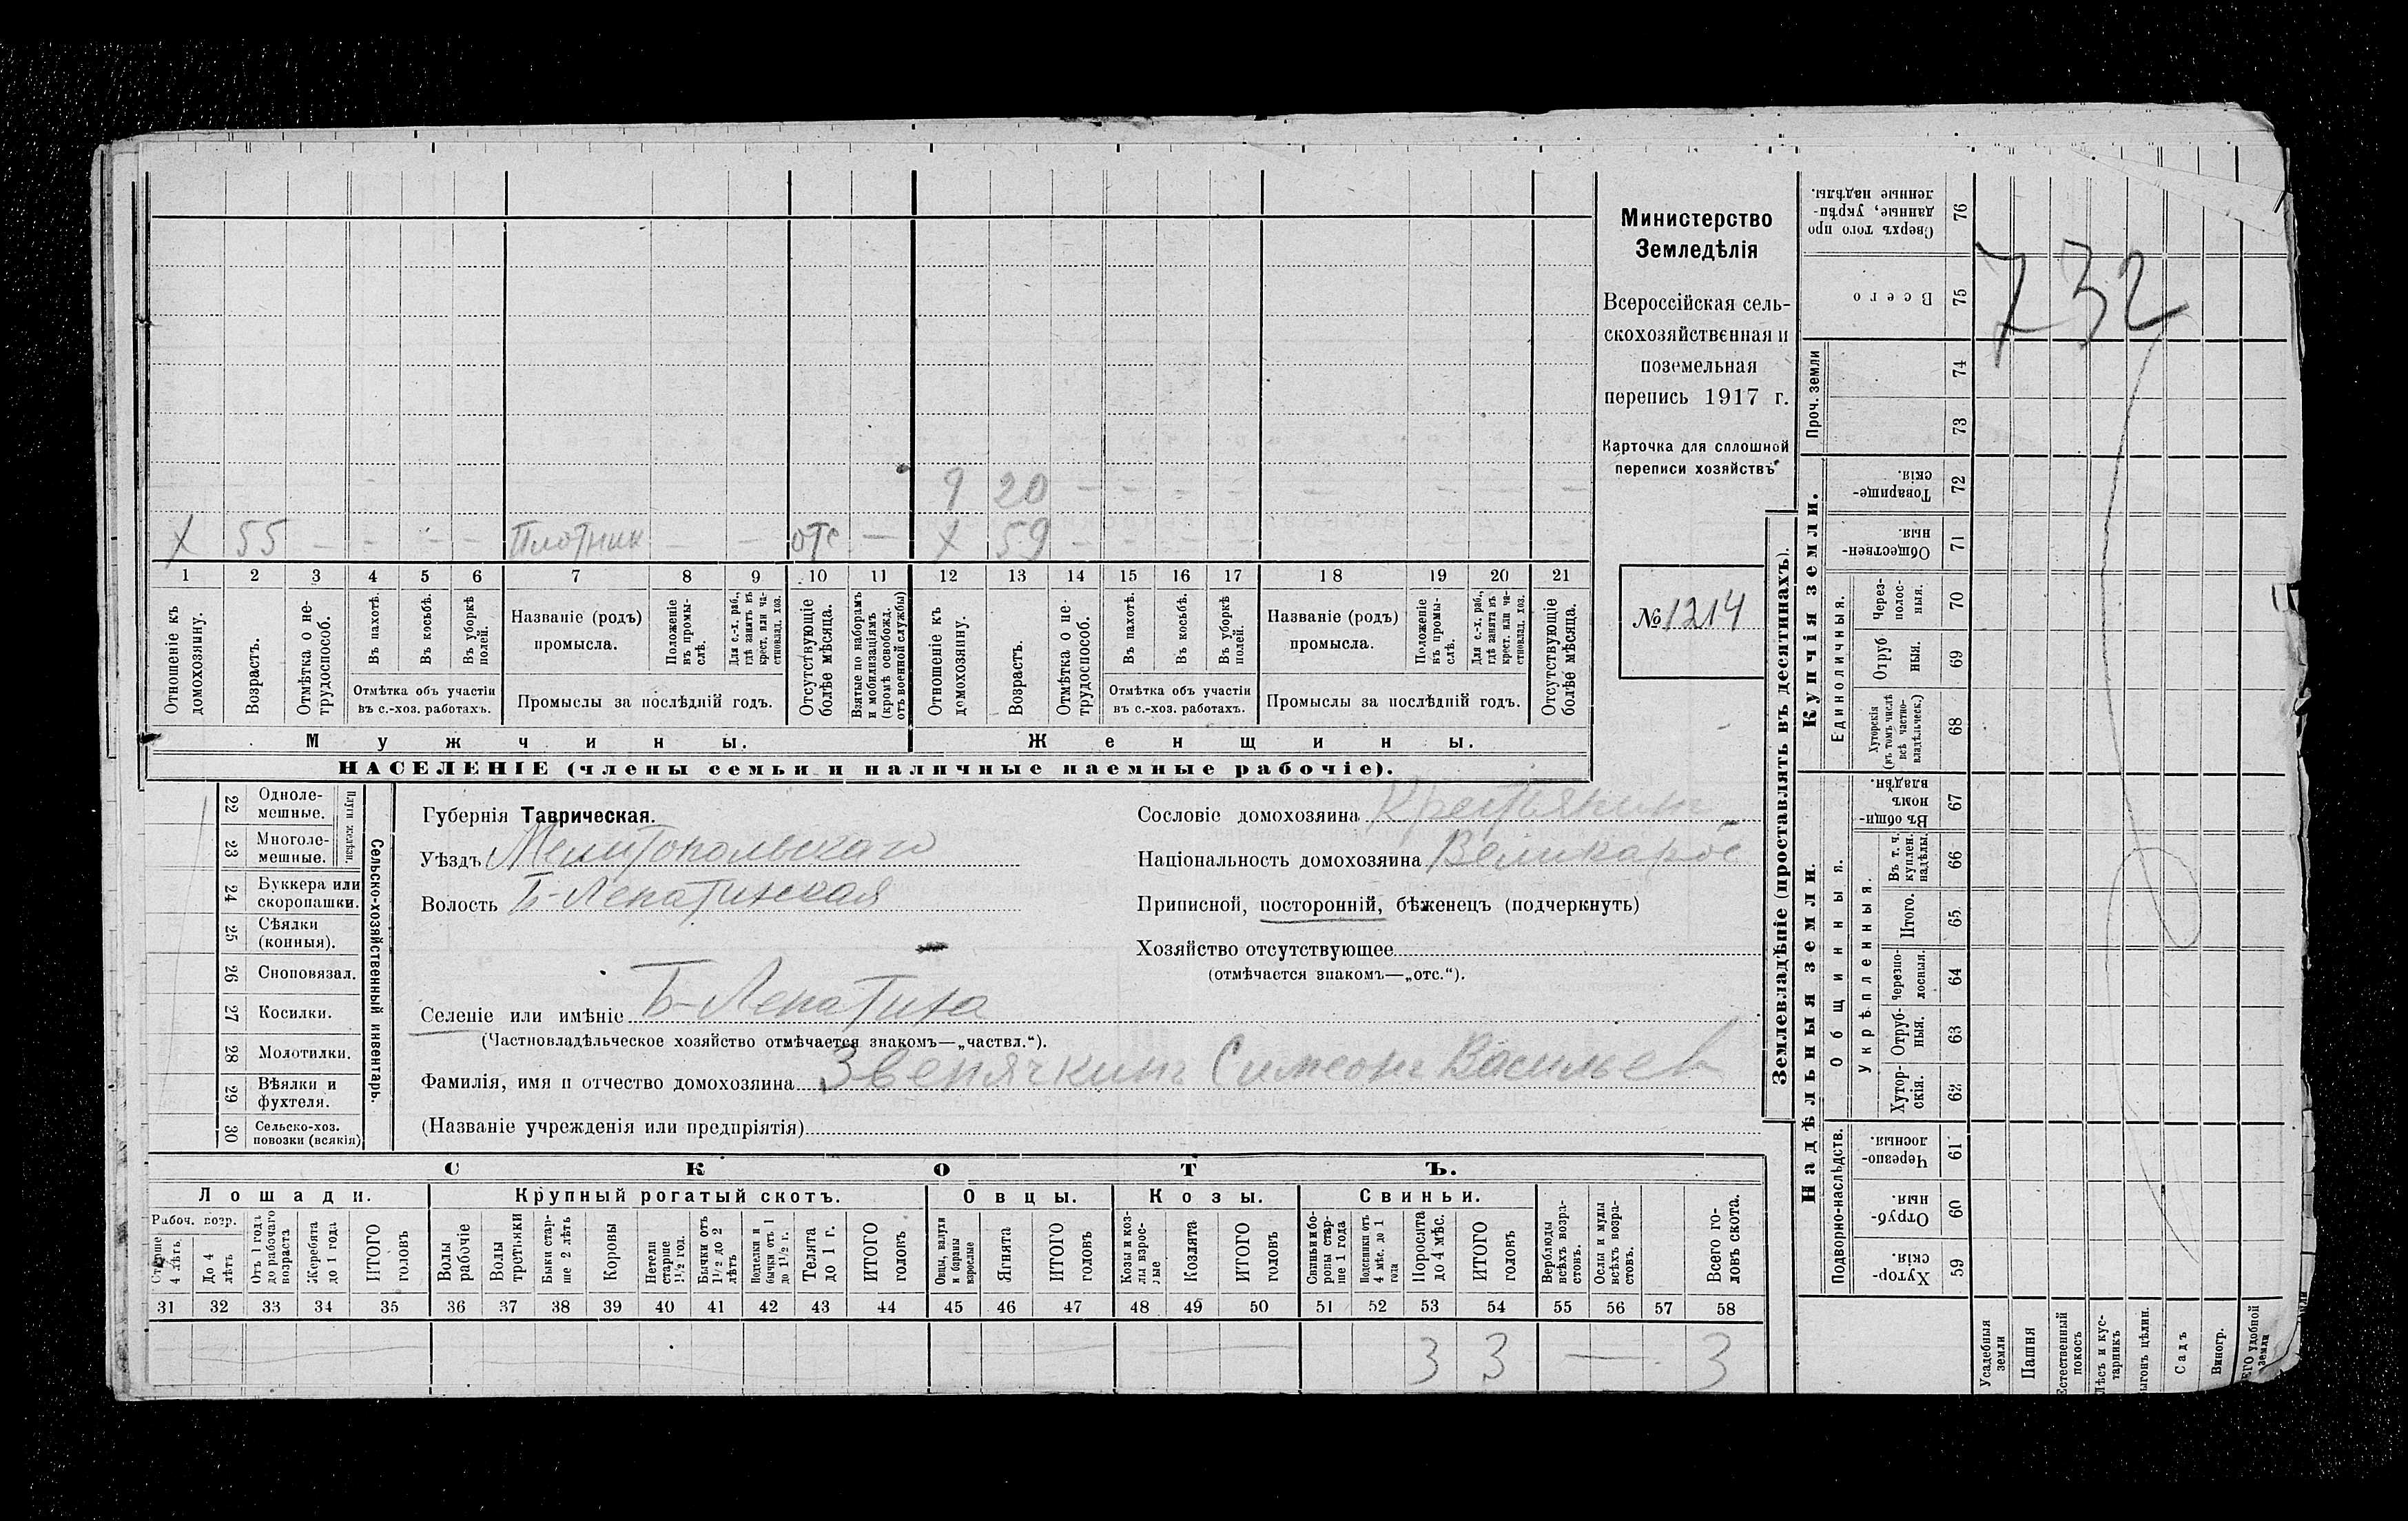 9 20 — — — — — — — —
Х 55 — — — — Плотник — — отс — Х 59 — — — — — — — —
1 2 3 4 5 6 7 8 9 10 11 12 13 14 15 16 17 18 19 20 21
Отношеніе къ домохозяину.
Возрастъ.
Отмѣтка о не-трудоспособ.
Въ пахотѣ.
Въ косьбѣ.
Въ уборкѣ полей.
Отмѣтка объ участіи въ с.-хоз. работахъ.
Названіе (родъ) промысла.
Положеніе въ промы-слѣ.
Для с.-х. раб., гдѣ занятъ въ крест. или ча-стновлад. хоз.
Промыслы за послѣдній годъ.
Отсутствующіе болѣе мѣсяца.
Взятые по наборамъ и мобилизаціямъ (кромѣ освобожд. отъ военной службы)
Отношеніе къ домохозяину.
Возрастъ.
Отмѣтка о не-трудоспособ.
Въ пахотѣ.
Въ косьбѣ.
Въ уборкѣ полей.
Отмѣтка объ участіи въ с.-хоз. работахъ.
Названіе (родъ) промысла.
Положеніе въ промы-слѣ.
Для с.-х. раб., гдѣ занята въ крест. или ча-стновлад. хоз.
Промыслы за послѣдній годъ.
Отсутствующіе болѣе мѣсяца.
Мужчины.
Женщины.
НАСЕЛЕНІЕ (члены семьи и наличные наемные рабочіе).
Министерство
Земледѣлія
Всероссійская сель-
скохозяйственная и
поземельная
перепись 1917 г.
Карточка для сплошной
переписи хозяйствъ
№ 1214
22 Одноле-мешные.
23 Многоле-мешные.
Плуги желѣзн.
24 Буккера или скоропашки.
25 Сѣялки (конныя).
26 Сноповязал.
27 Косилки.
28 Молотилки.
29 Вѣялки и фухтеля.
30 Сельско-хоз. повозки (всякія)
Сельско-хозяйственный инвентарь.
Губернія Таврическая.
Уѣздъ Мелитопольскаго
Волость Б-Лепатихская
Селеніе или имѣніе Б-Лепатиха
(Частновладѣльческое хозяйство отмѣчается знакомъ—„частвл.“).
Фамилія, имя и отчество домохозяина Звенячкинъ Симеонъ Васильев
(Названіе учрежденія или предпріятія)
Сословіе домохозяина Крестьянинъ
Національность домохозяина Великорос
Приписной, посторонній, бѣженецъ (подчеркнуть)
Хозяйство отсутствующее
(отмѣчается знакомъ—„отс.“).
СКОТЪ.
Лошади.
Крупный рогатый скотъ.
Овцы.
Козы.
Свиньи.
Рабоч. возр.
Старше 4 лѣтъ.
До 4 лѣтъ
Отъ 1 года до рабочаго возраста
Жеребята до 1 года
ИТОГО головъ
Волы рабочіе
Волы третьяки
Быки стар-ше 2 лѣтъ
Коровы
Нетели старше 1½ год.
Бычки отъ 1½ до 2 лѣтъ
Подтелки и бычки отъ 1 до 1½ г.
Телята до 1 г.
ИТОГО головъ
Овцы, валухи и бараны взрослые
Ягнята
ИТОГО головъ
Козы и коз-лы взрос-лые
Козлята
ИТОГО головъ
Свиньи и бо-ровы стар-ше 1 года
Подсвинки отъ 4 мѣс. до 1 года
Поросята до 4 мѣс.
ИТОГО головъ
Верблюды всѣхъ возра-стовъ.
Ослы и мулы всѣхъ возра-стовъ.
Всего го-ловъ скота.
31 32 33 34 35 36 37 38 39 40 41 42 43 44 45 46 47 48 49 50 51 52 53 54 55 56 57 58
3 3 — 3
Землевладѣніе (проставлять въ десятинахъ).
732
Сверхъ того про-данные, укрѣп-ленные надѣлы. 76
Всего 75
Проч. земли
74
73
Купчія земли.
Товарище-скія. 72
Обществен-ныя. 71
Единоличныя.
Через-полос-ныя. 70
Отруб-ныя. 69
Хуторскія (въ томъ числѣ всѣ частно-владѣльческ.) 68
Надѣльныя земли.
Общинныя.
Въ общи-номъ владѣн. 67
Укрѣпленныя.
Въ т. ч. куплен. надѣлы 66
Итого. 65
Черезпо-лосныя. 64
Отруб-ныя. 63
Хутор-скія. 62
Подворно-наслѣдств.
Черезпо-лосныя. 61
Отруб-ныя. 60
Хутор-скія. 59
Усадебныя земли
Пашня
Естественный покосъ
Лѣсъ и кус-тарникъ
Выгонъ цѣлин.
Садъ
Виногр.
удобной земли